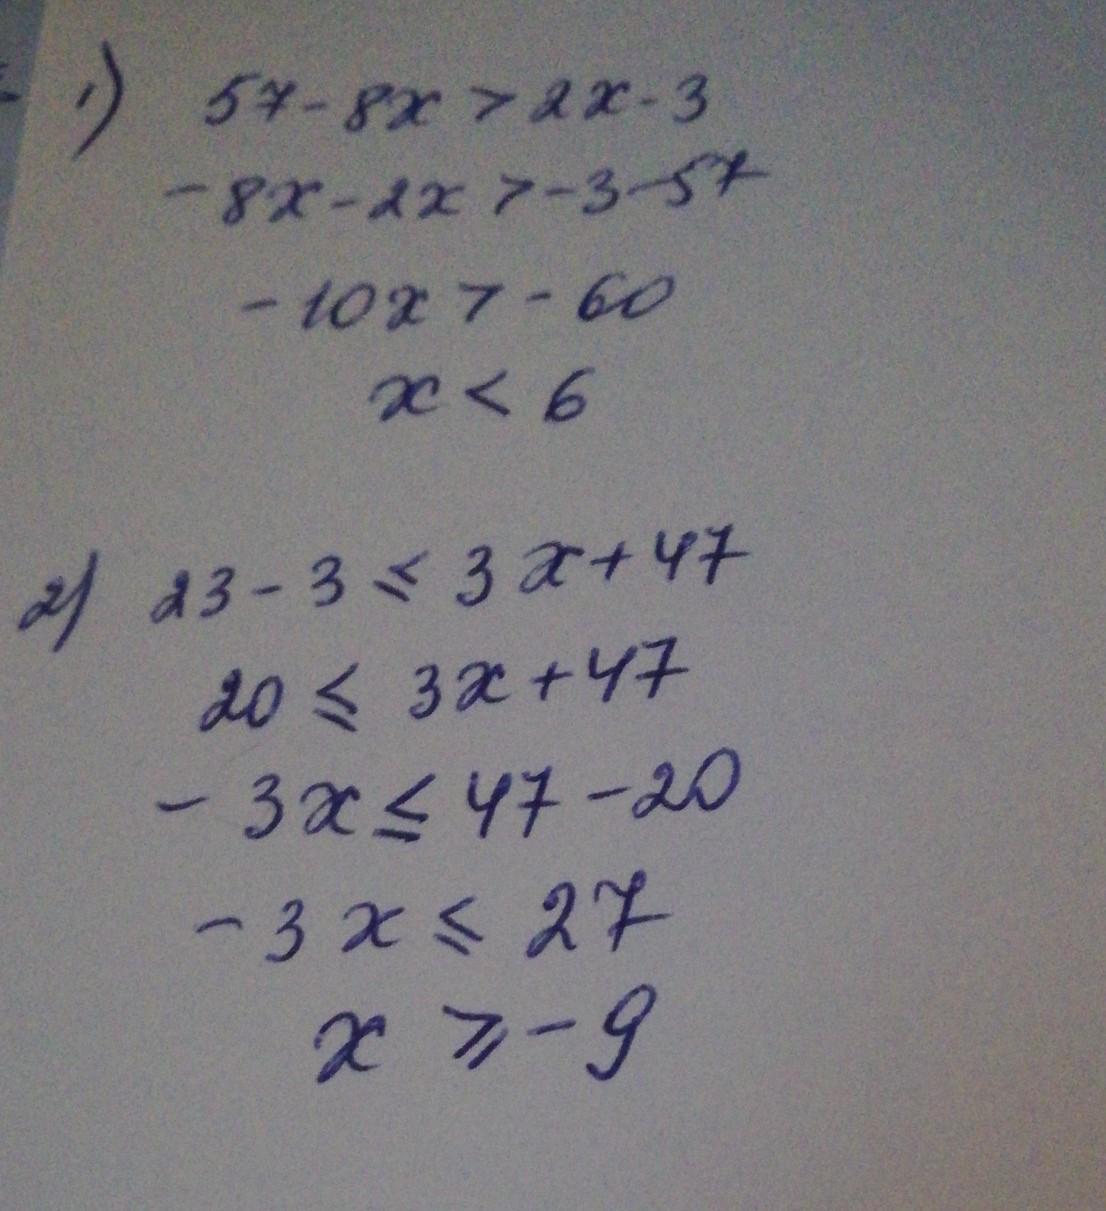 1) 57-8x>2x-3
-8x-2x>-3-57
-10x>-60
x<6
2) 23-3≤3x+47
20≤3x+47
-3x≤47-20
-3x≤27
x≥-9